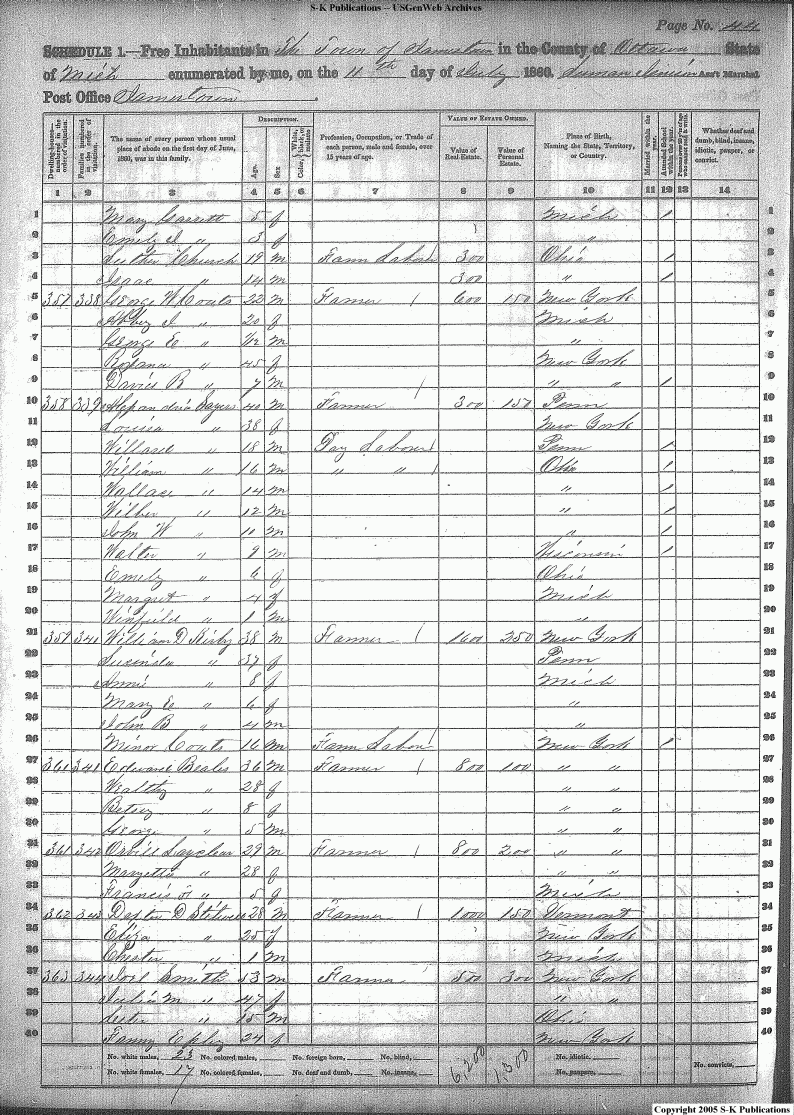 S-K Publications – USGenWeb Archives
Page No. 44
SCHEDULE 1.—Free Inhabitants in The Town of Jamestown in the County of Ottawa State
of Mich enumerated by me, on the 11th day of July 1860. Ass't Marshal
Post Office Jamestown
Dwelling-houses—numbered in the order of visitation.
Families numbered in the order of visitation.
The name of every person whose usual place of abode on the first day of June, 1860, was in this family.
DESCRIPTION.
Age.
Sex
Color, White, black, or mulatto
Profession, Occupation, or Trade of each person, male and female, over 15 years of age.
VALUE OF ESTATE OWNED.
Value of Real Estate.
Value of Personal Estate.
Place of Birth, Naming the State, Territory, or Country.
Married within the year.
Attended School within the year.
Whether deaf and dumb, blind, insane, idiotic, pauper, or convict.
1 2 3 4 5 6 7 8 9 10 11 12 13 14
1 Mary Garrett 5 f Mich / 1
2 Emily J " 3 f " 2
3 Luther Church 19 m Farm Labor 300 Ohio / 3
4 Isaac " 14 m 300 " / 4
5 357 338 George W Couts 22 m Farmer / 600 150 New York 5
6 Abby J " 20 f Mich 6
7 George E " m " 7
8 Roxana " 45 f New York 8
9 David R " 7 m " " / 9
10 358 339 Sayers 40 m Farmer 300 150 Penn 10
11 Louisa " 38 f New York 11
12 Willard " 18 m Day Labour Penn / 12
13 William " 16 m " " Ohio / 13
14 Wallace " 14 m " / 14
15 Wilber " 12 m " / 15
16 John W " 10 m " / 16
17 Walter " 9 m Wisconsin / 17
18 Emily " 6 f Ohio 18
19 Margret " 4 f Mich 19
20 Winfield " 1 m " 20
21 359 340 William D Kirby 38 m Farmer / 1600 250 New York 21
22 Lucinda " 37 f Penn 22
23 Annie " 8 f Mich 23
24 Mary E " 6 f " 24
25 John B " 4 m " 25
26 Minor Couts 16 m Farm Labor New York / 26
27 361 341 Edward Beales 36 m Farmer / 800 100 " " 27
28 Wealthy " 28 f " " 28
29 Betsey " 8 f " " 29
30 George " 5 m " " 30
31 361 342 Orvill 29 m Farmer / 800 200 " " 31
32 Maryetta " 28 f " " 32
33 Francis " 5 f Mich 33
34 362 343 D 28 m Farmer 1000 150 Vermont 34
35 Eliza " 25 f New York 35
36 Chester " 1 m Mich 36
37 363 344 Joel Smith 53 m Farmer 500 300 New York 37
38 Julia M " 47 f " " 38
39 " 15 m Ohio 39
40 Fanny 24 f New York 40
No. white males, 23 No. colored males, No. foreign born, No. blind, 6,200 1,300 No. idiotic,
No. white females, 17 No. colored females, No. deaf and dumb, No. insane, No. paupers, No. convicts,
Copyright 2005 S-K Publications